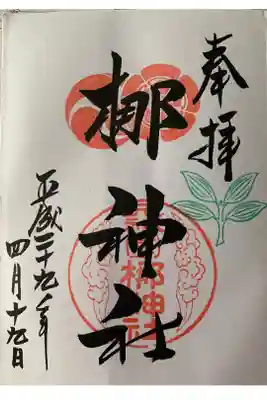 奉拝
梛神社
梛神社
平成二十九年
四月十九日